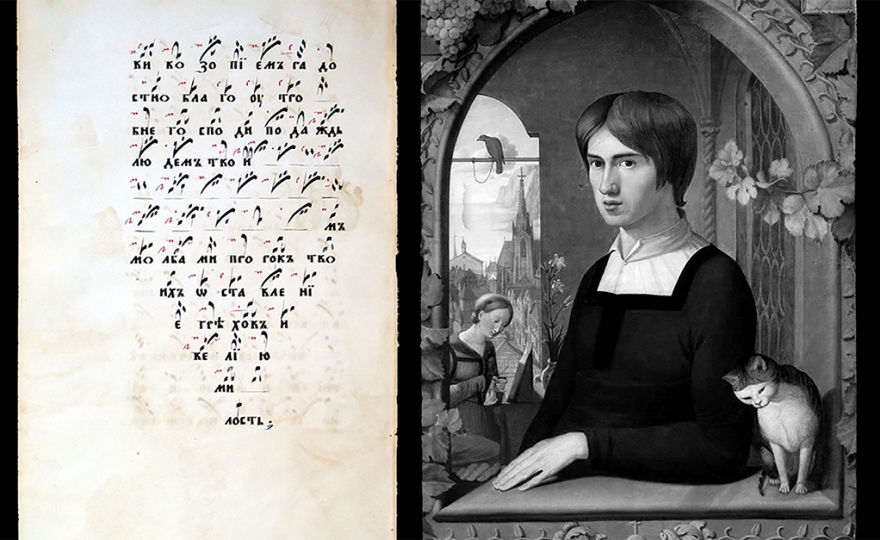 ви во зо пї емъ ра до
стно бла го оу тро
бне го спо ди по да ждь
лю демъ тво и
мъ
мо лба ми про рокъ тво
ихъ ѡ ста вле нї
е грѣ ховъ и
ве лї ю
ми
лость